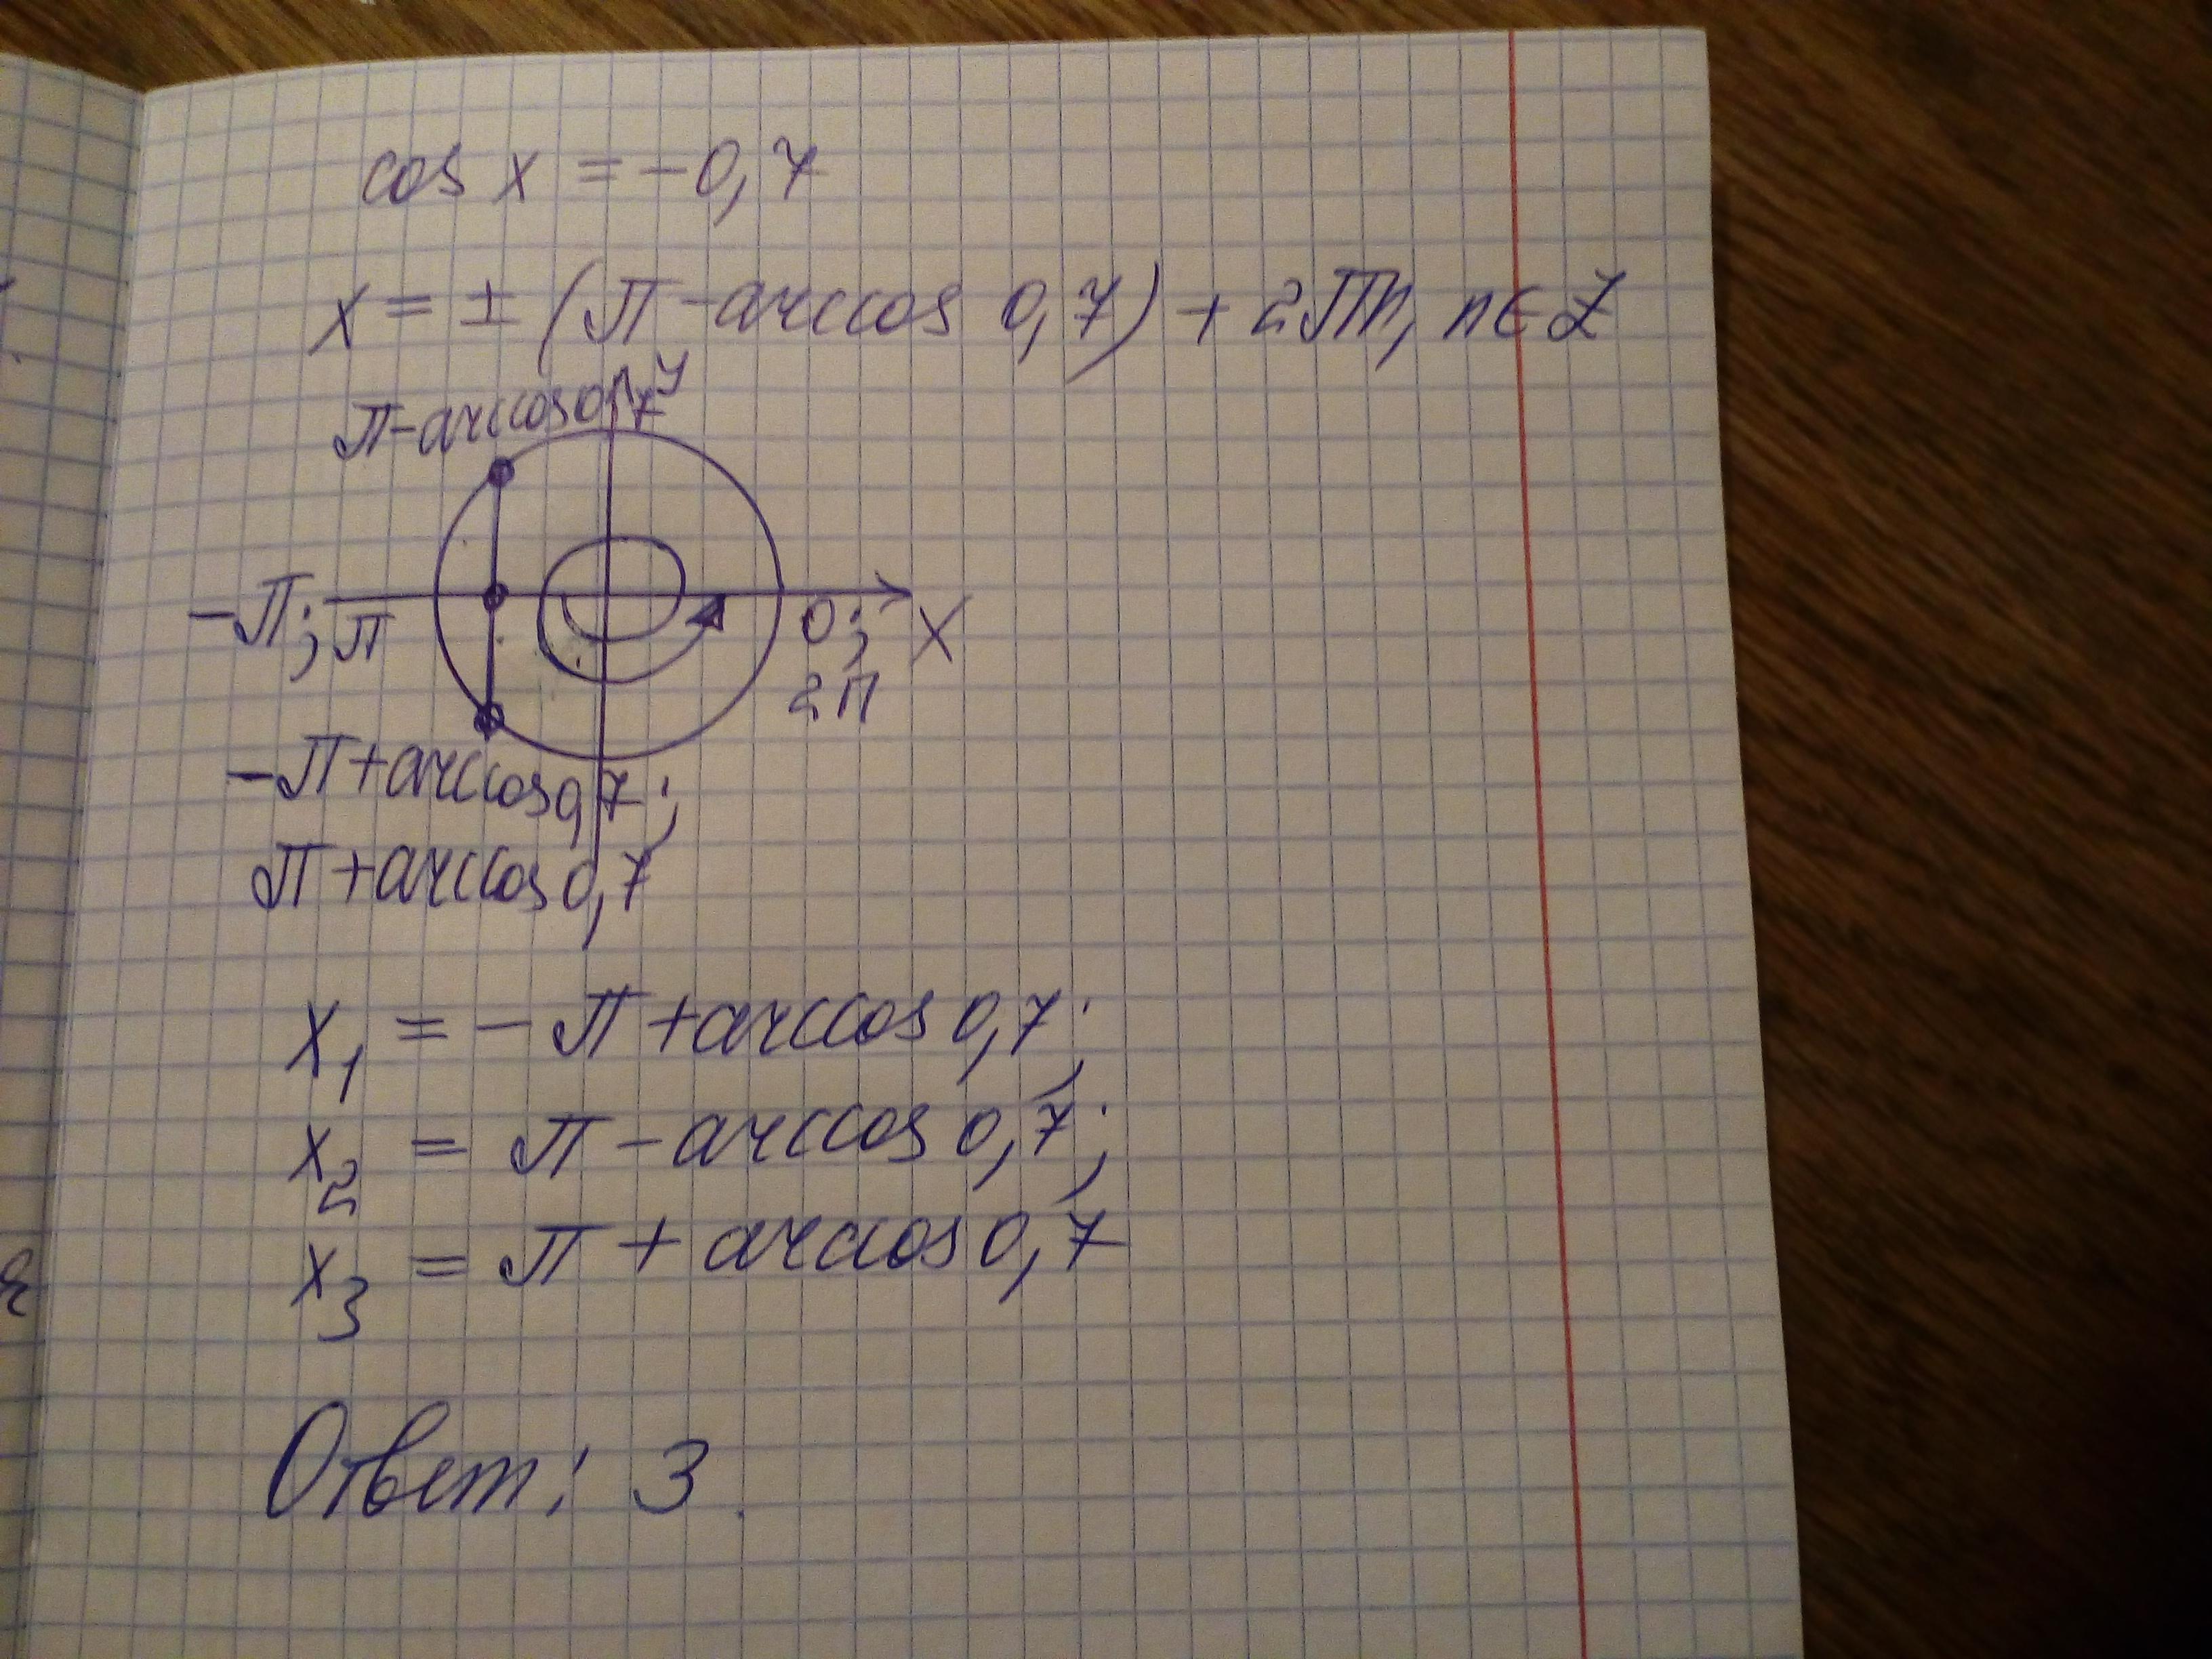 cos x = -0,7
x = ± (π - arccos 0,7) + 2πn, n∈Z
y
π-arccos0,7
-π; π
0; 2π
x
-π+arccos0,7;
π+arccos0,7
x₁ = -π+arccos0,7;
x₂ = π-arccos0,7;
x₃ = π+arccos0,7
Ответ: 3.